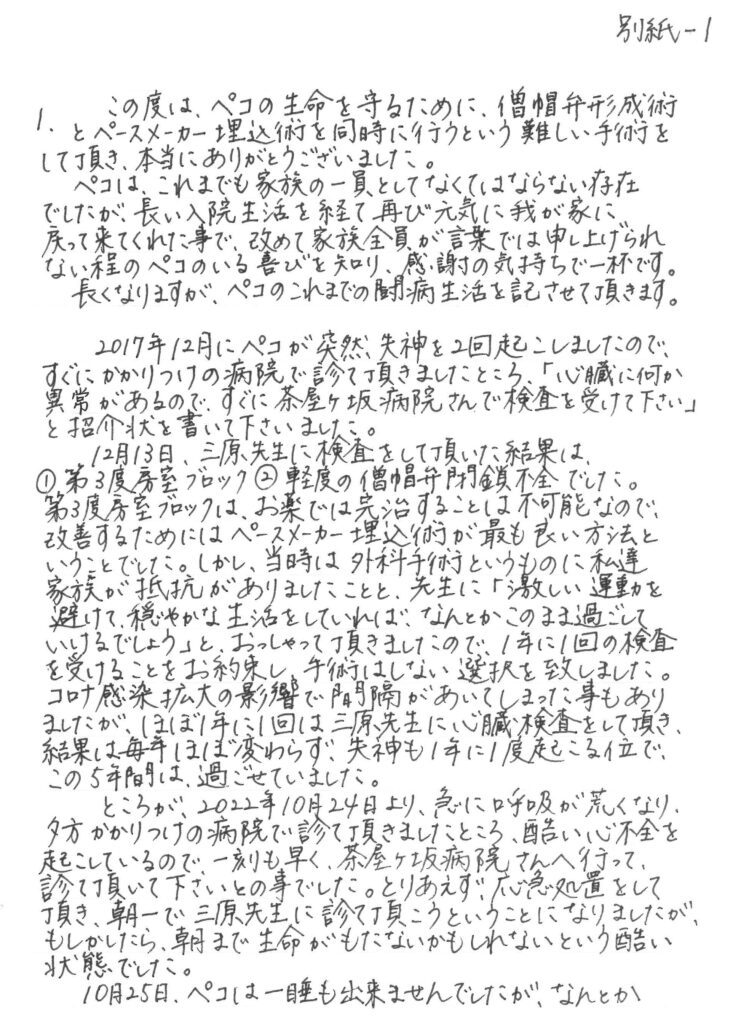 別紙-1
この度は、ペコの生命を守るために、僧帽弁形成術
1. とペースメーカー埋込術を同時に行うという難しい手術を
して頂き、本当にありがとうございました。
ペコは、これまでも家族の一員としてなくてはならない存在
でしたが、長い入院生活を経て再び元気に我が家に
戻って来てくれた事で、改めて家族全員が言葉では申し上げられ
ない程のペコのいる喜びを知り、感謝の気持ちで一杯です。
長くなりますが、ペコのこれまでの闘病生活を記させて頂きます。
2017年12月にペコが突然、失神を2回起こしましたので、
すぐにかかりつけの病院で診て頂きましたところ、「心臓に何か
異常があるので、すぐに茶屋ヶ坂病院さんで検査を受けて下さい」
と紹介状を書いて下さいました。
12月13日、三原先生に検査をして頂いた結果は、
①第3度房室ブロック②軽度の僧帽弁閉鎖不全でした。
第3度房室ブロックは、お薬では完治することは不可能なので、
改善するためにはペースメーカー埋込術が最も良い方法と
いうことでした。しかし、当時は外科手術というものに私達
家族が抵抗がありましたことと、先生に「激しい運動を
避けて、穏やかな生活をしていれば、なんとかこのまま過ごして
いけるでしょう」と、おっしゃって頂きましたので、1年に1回の検査
を受けることをお約束し、手術はしない選択を致しました。
コロナ感染拡大の影響で間隔があいてしまった事もあり
ましたが、ほぼ1年に1回は三原先生に心臓検査をして頂き、
結果は毎年ほぼ変わらず、失神も1年に1度起こる位で、
この5年間は、過ごせていました。
ところが、2022年10月24日より、急に呼吸が荒くなり、
夕方かかりつけの病院で診て頂きましたところ、酷い心不全を
起こしているので一刻も早く、茶屋ヶ坂病院さんへ行って、
診て頂いて下さいとの事でした。とりあえず、応急処置をして
頂き、朝一で三原先生に診て頂こうということになりましたが、
もしかしたら、朝まで生命がもたないかもしれないという酷い
状態でした。
10月25日、ペコは一睡も出来ませんでしたが、なんとか